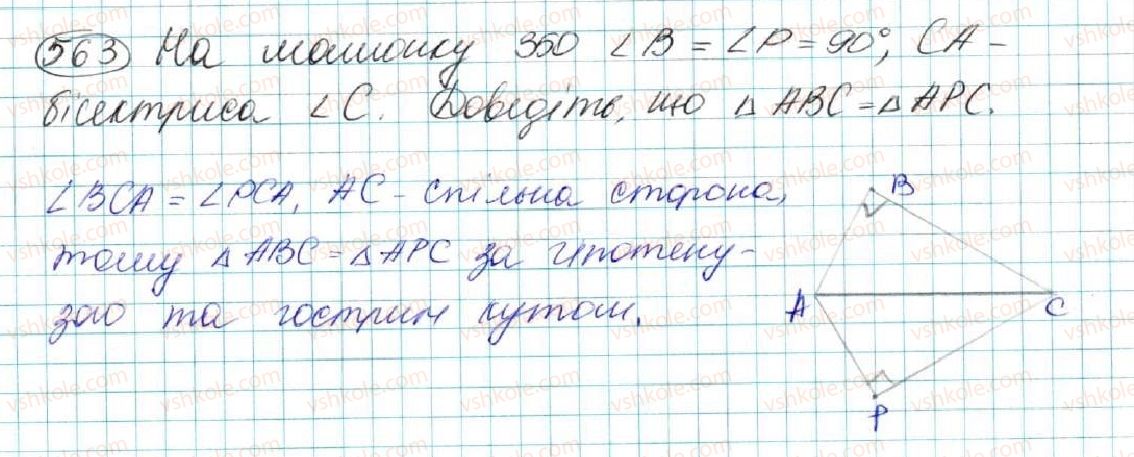 563 На малюнку 350 ∠B = ∠P = 90°, CA -
бісектриса ∠C. Доведіть, що △ABC = △APC.
∠BCA = ∠PCA, AC - спільна сторона,
тому △ABC = △APC за гіпотену-
зою та гострим кутом.
B
A
C
P
vshkole.com